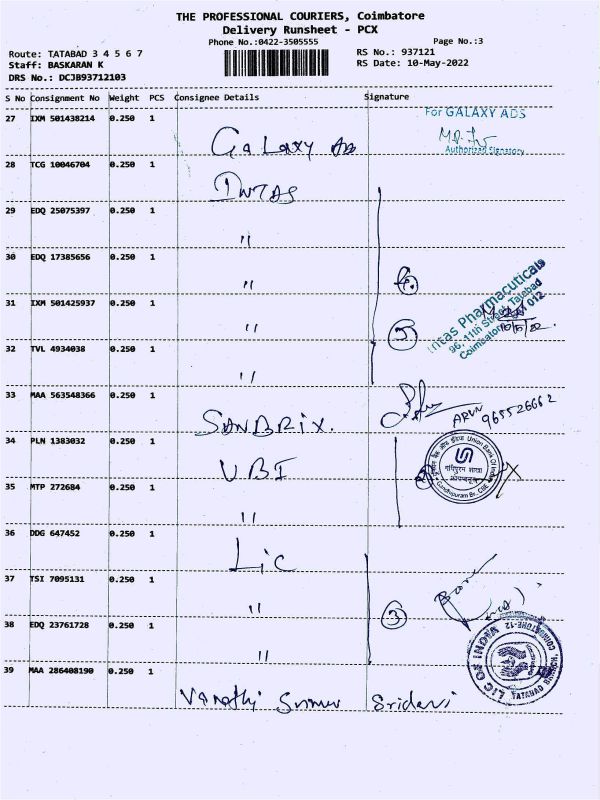 THE PROFESSIONAL COURIERS, Coimbatore
Delivery Runsheet - PCX
Phone No.:0422-3505555
Page No.:3
Route: TATABAD 3 4 5 6 7
RS No.: 937121
Staff: BASKARAN K
RS Date: 10-May-2022
DRS No.: DCJB93712103
S No Consignment No Weight PCS Consignee Details Signature
27 IXM 501438214 0.250 1
Galaxy Ads
For GALAXY ADS
Authorized Signatory
28 TCG 10046704 0.250 1
INTAS
29 EDQ 25075397 0.250 1
"
30 EDQ 17385656 0.250 1
"
31 IXM 501425937 0.250 1
"
5
Intas Pharmacuticals
96, 11th Street, Tatabad
Coimbatore 641 012
32 TVL 4934038 0.250 1
"
33 MAA 563548366 0.250 1
SANBRIX.
ARUN
965526662
34 PLN 1383032 0.250 1
UBI
यूनियन बैंक ऑफ इंडिया Union Bank Of India
Gandhipuram Br., CBE
35 MTP 272684 0.250 1
"
36 DDG 647452 0.250 1
Lic
37 TSI 7095131 0.250 1
"
3
38 EDQ 23761728 0.250 1
"
LIC OF INDIA
COIMBATORE-12
TATABAD
39 MAA 286408190 0.250 1
Vanathi Sridevi